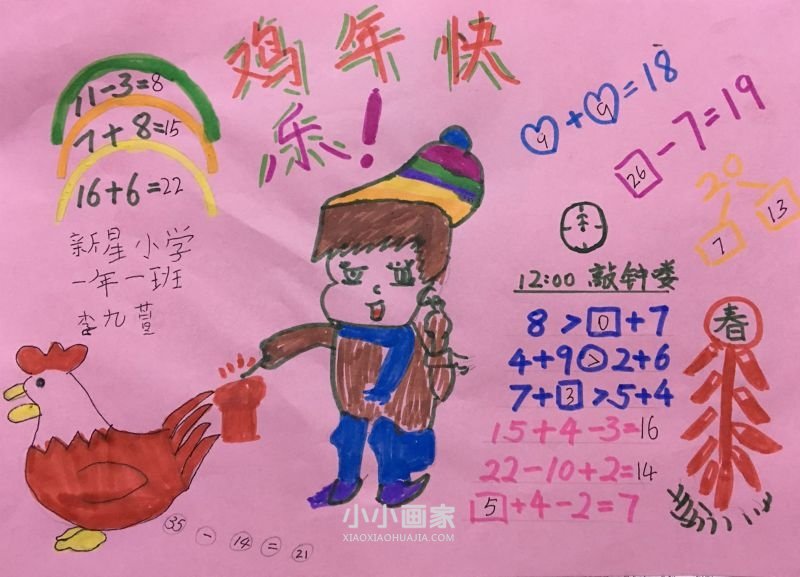 鸡年快
乐!
11-3=8
7+8=15
16+6=22
新星小学
一年一班
李九萱
9+9=18
26-7=19
20
7 13
12:00 敲钟喽
8>0+7
4+9>2+6
7+3>5+4
15+4-3=16
22-10+2=14
5+4-2=7
春
35-14=21
小小画家
XIAOXIAOHUAJIA.COM